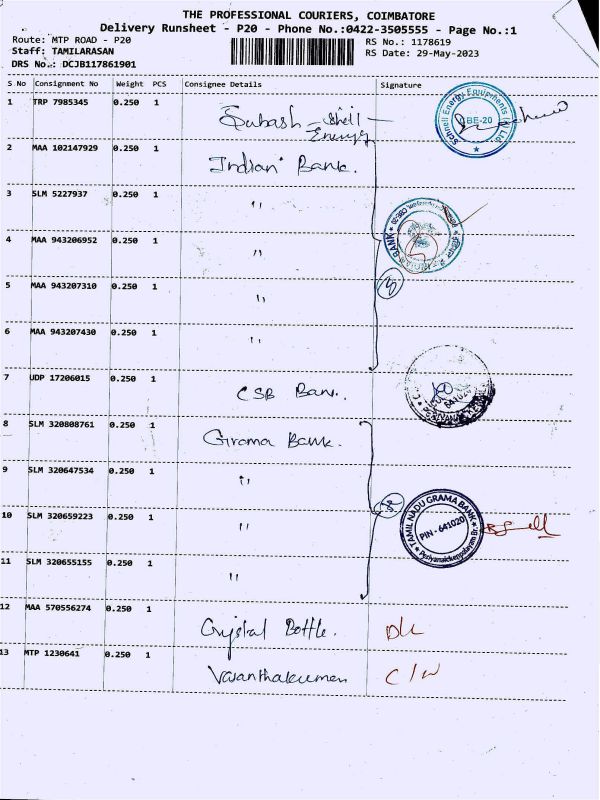 THE PROFESSIONAL COURIERS, COIMBATORE
Delivery Runsheet - P20 - Phone No.:0422-3505555 - Page No.:1
Route: MTP ROAD - P20
RS No.: 1178619
Staff: TAMILARASAN
RS Date: 29-May-2023
DRS No.: DCJB117861901
S No Consignment No Weight PCS Consignee Details Signature
1 TRP 7985345 0.250 1 Subash - shell Energy
Schnell Energy Equipments (P) Ltd BE-20
2 MAA 102147929 0.250 1 Indian Bank.
3 SLM 5227937 0.250 1 "
4 MAA 943206952 0.250 1 "
BANK
5 MAA 943207310 0.250 1 "
5
6 MAA 943207430 0.250 1 "
7 UDP 17206015 0.250 1 CSB Bank.
641020
8 SLM 320808761 0.250 1 Grama Bank.
9 SLM 320647534 0.250 1 "
10 SLM 320659223 0.250 1 "
TAMIL NADU GRAMA BANK PIN - 641020 Periyanaickenpalayam Br.
11 SLM 320655155 0.250 1 "
12 MAA 570556274 0.250 1 Crystal Bottle. D/L
13 MTP 1230641 0.250 1 Vasanthakumar C/W